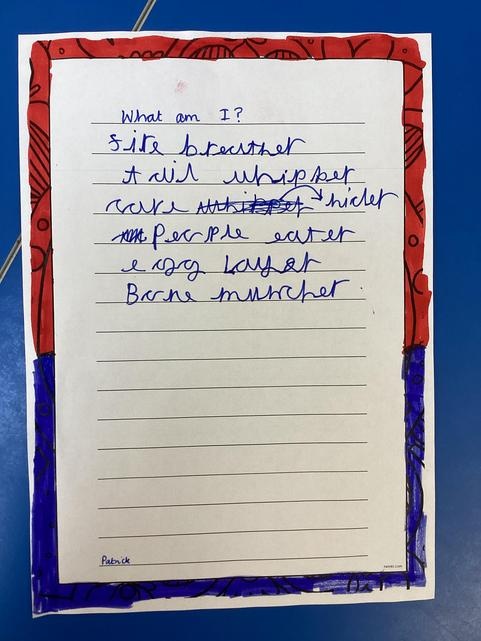 What am I?
fire breather
tail whipper
cave hider
people eater
egg layer
Bone muncher
Patrick
twinkl.com